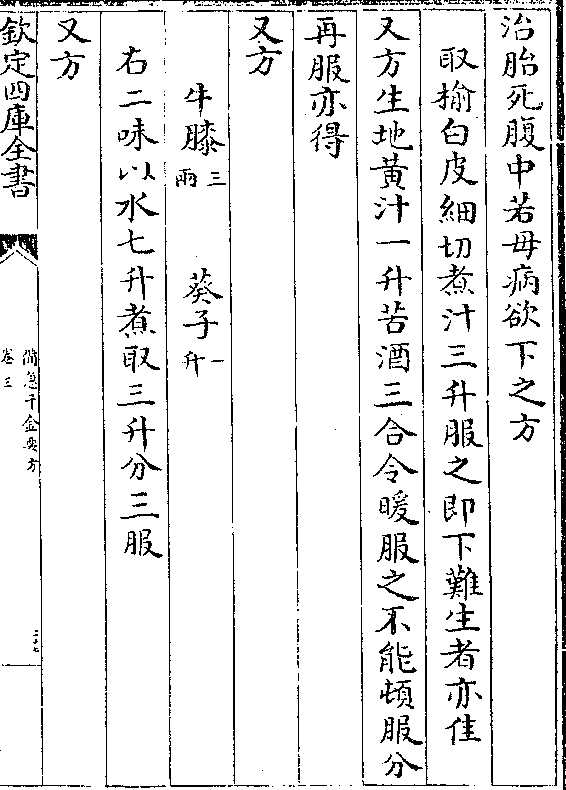 治胎死腹中若母病欲下之方
取榆白皮細切煮汁三升服之即下難生者亦佳
又方生地黃汁一升苦酒三合令暖服之不能頓服分
再服亦得
又方
牛膝三兩 葵子一升
右二味以水七升煮取三升分三服
又方
欽定四庫全書
備急千金要方
卷三